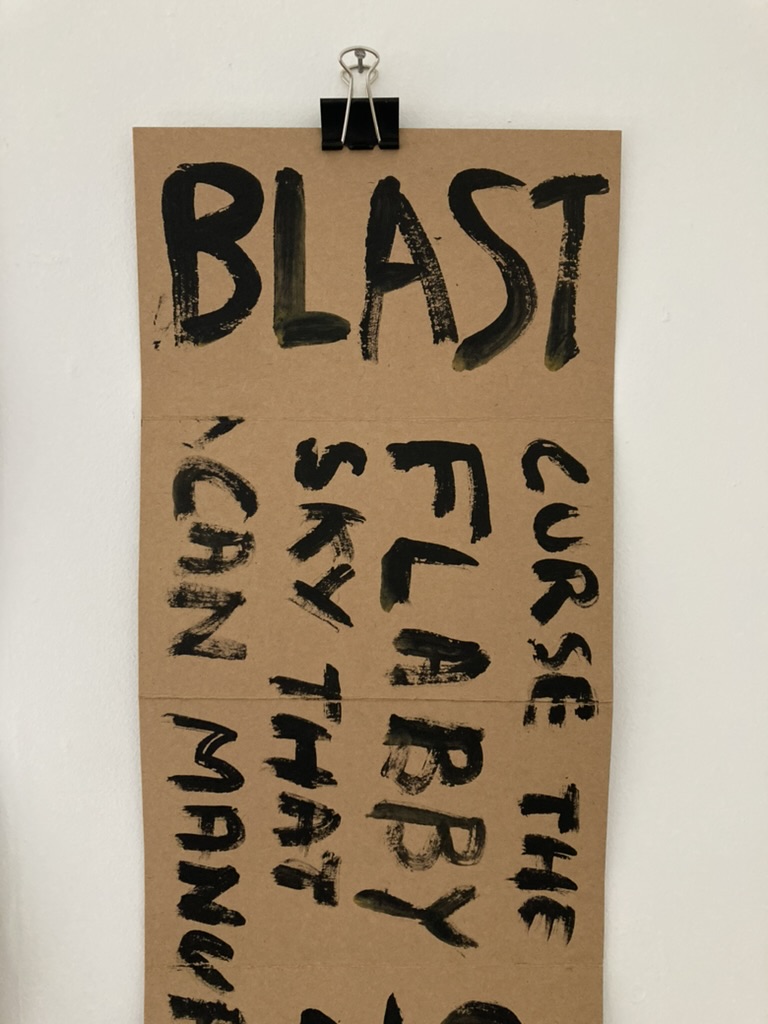 BLAST
CURSE THE
FLABBY
SKY THAT
CAN